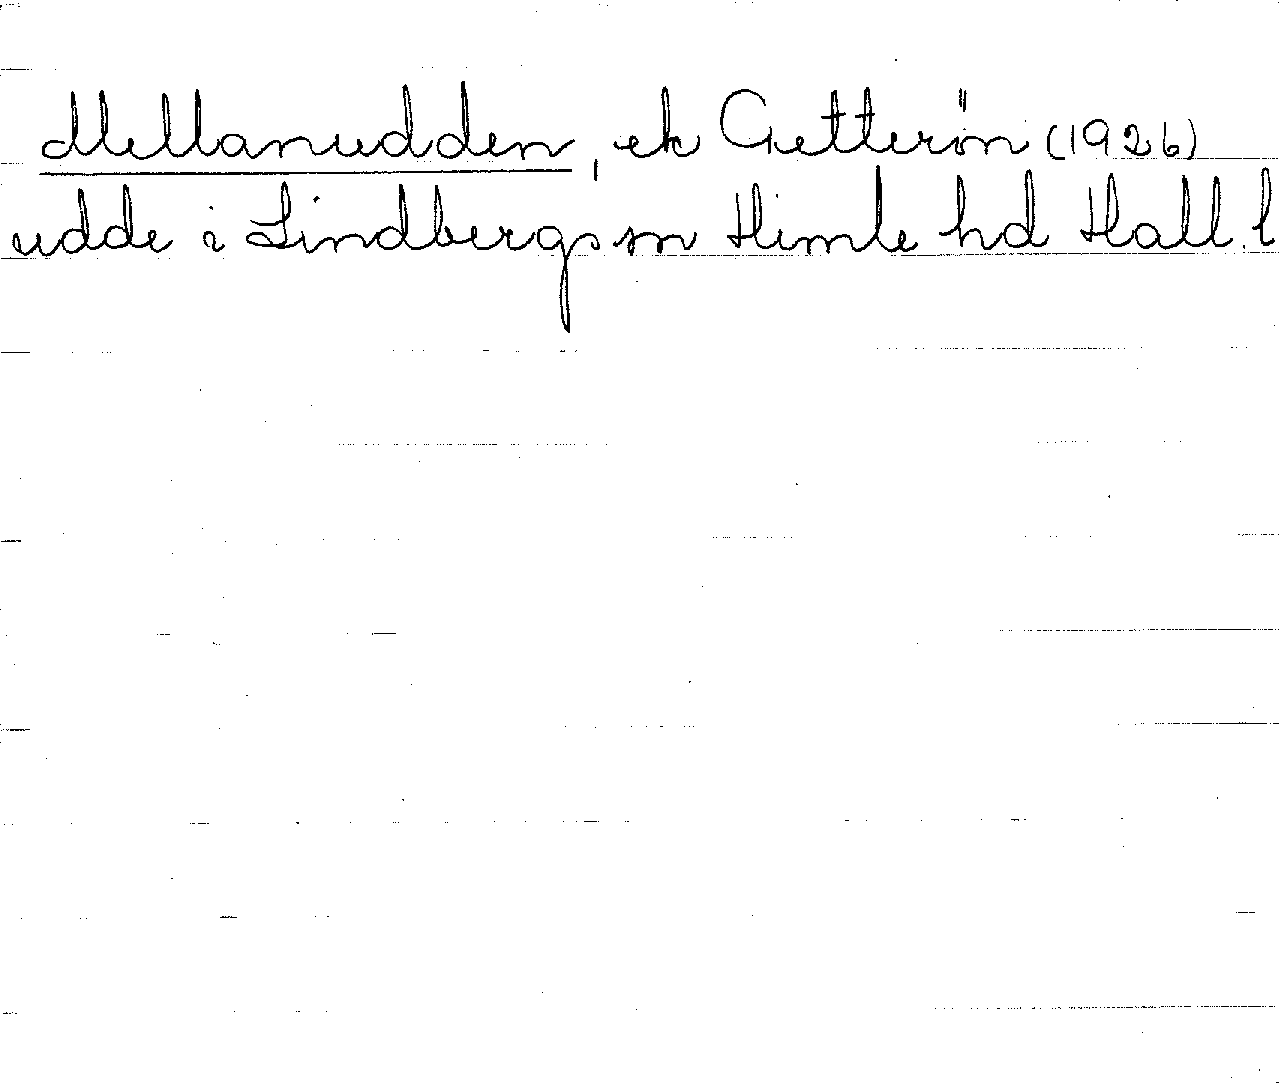 Mellanudden, ek Getterön (1926)
udde i Lindbergs sn Himle hd Hall. l